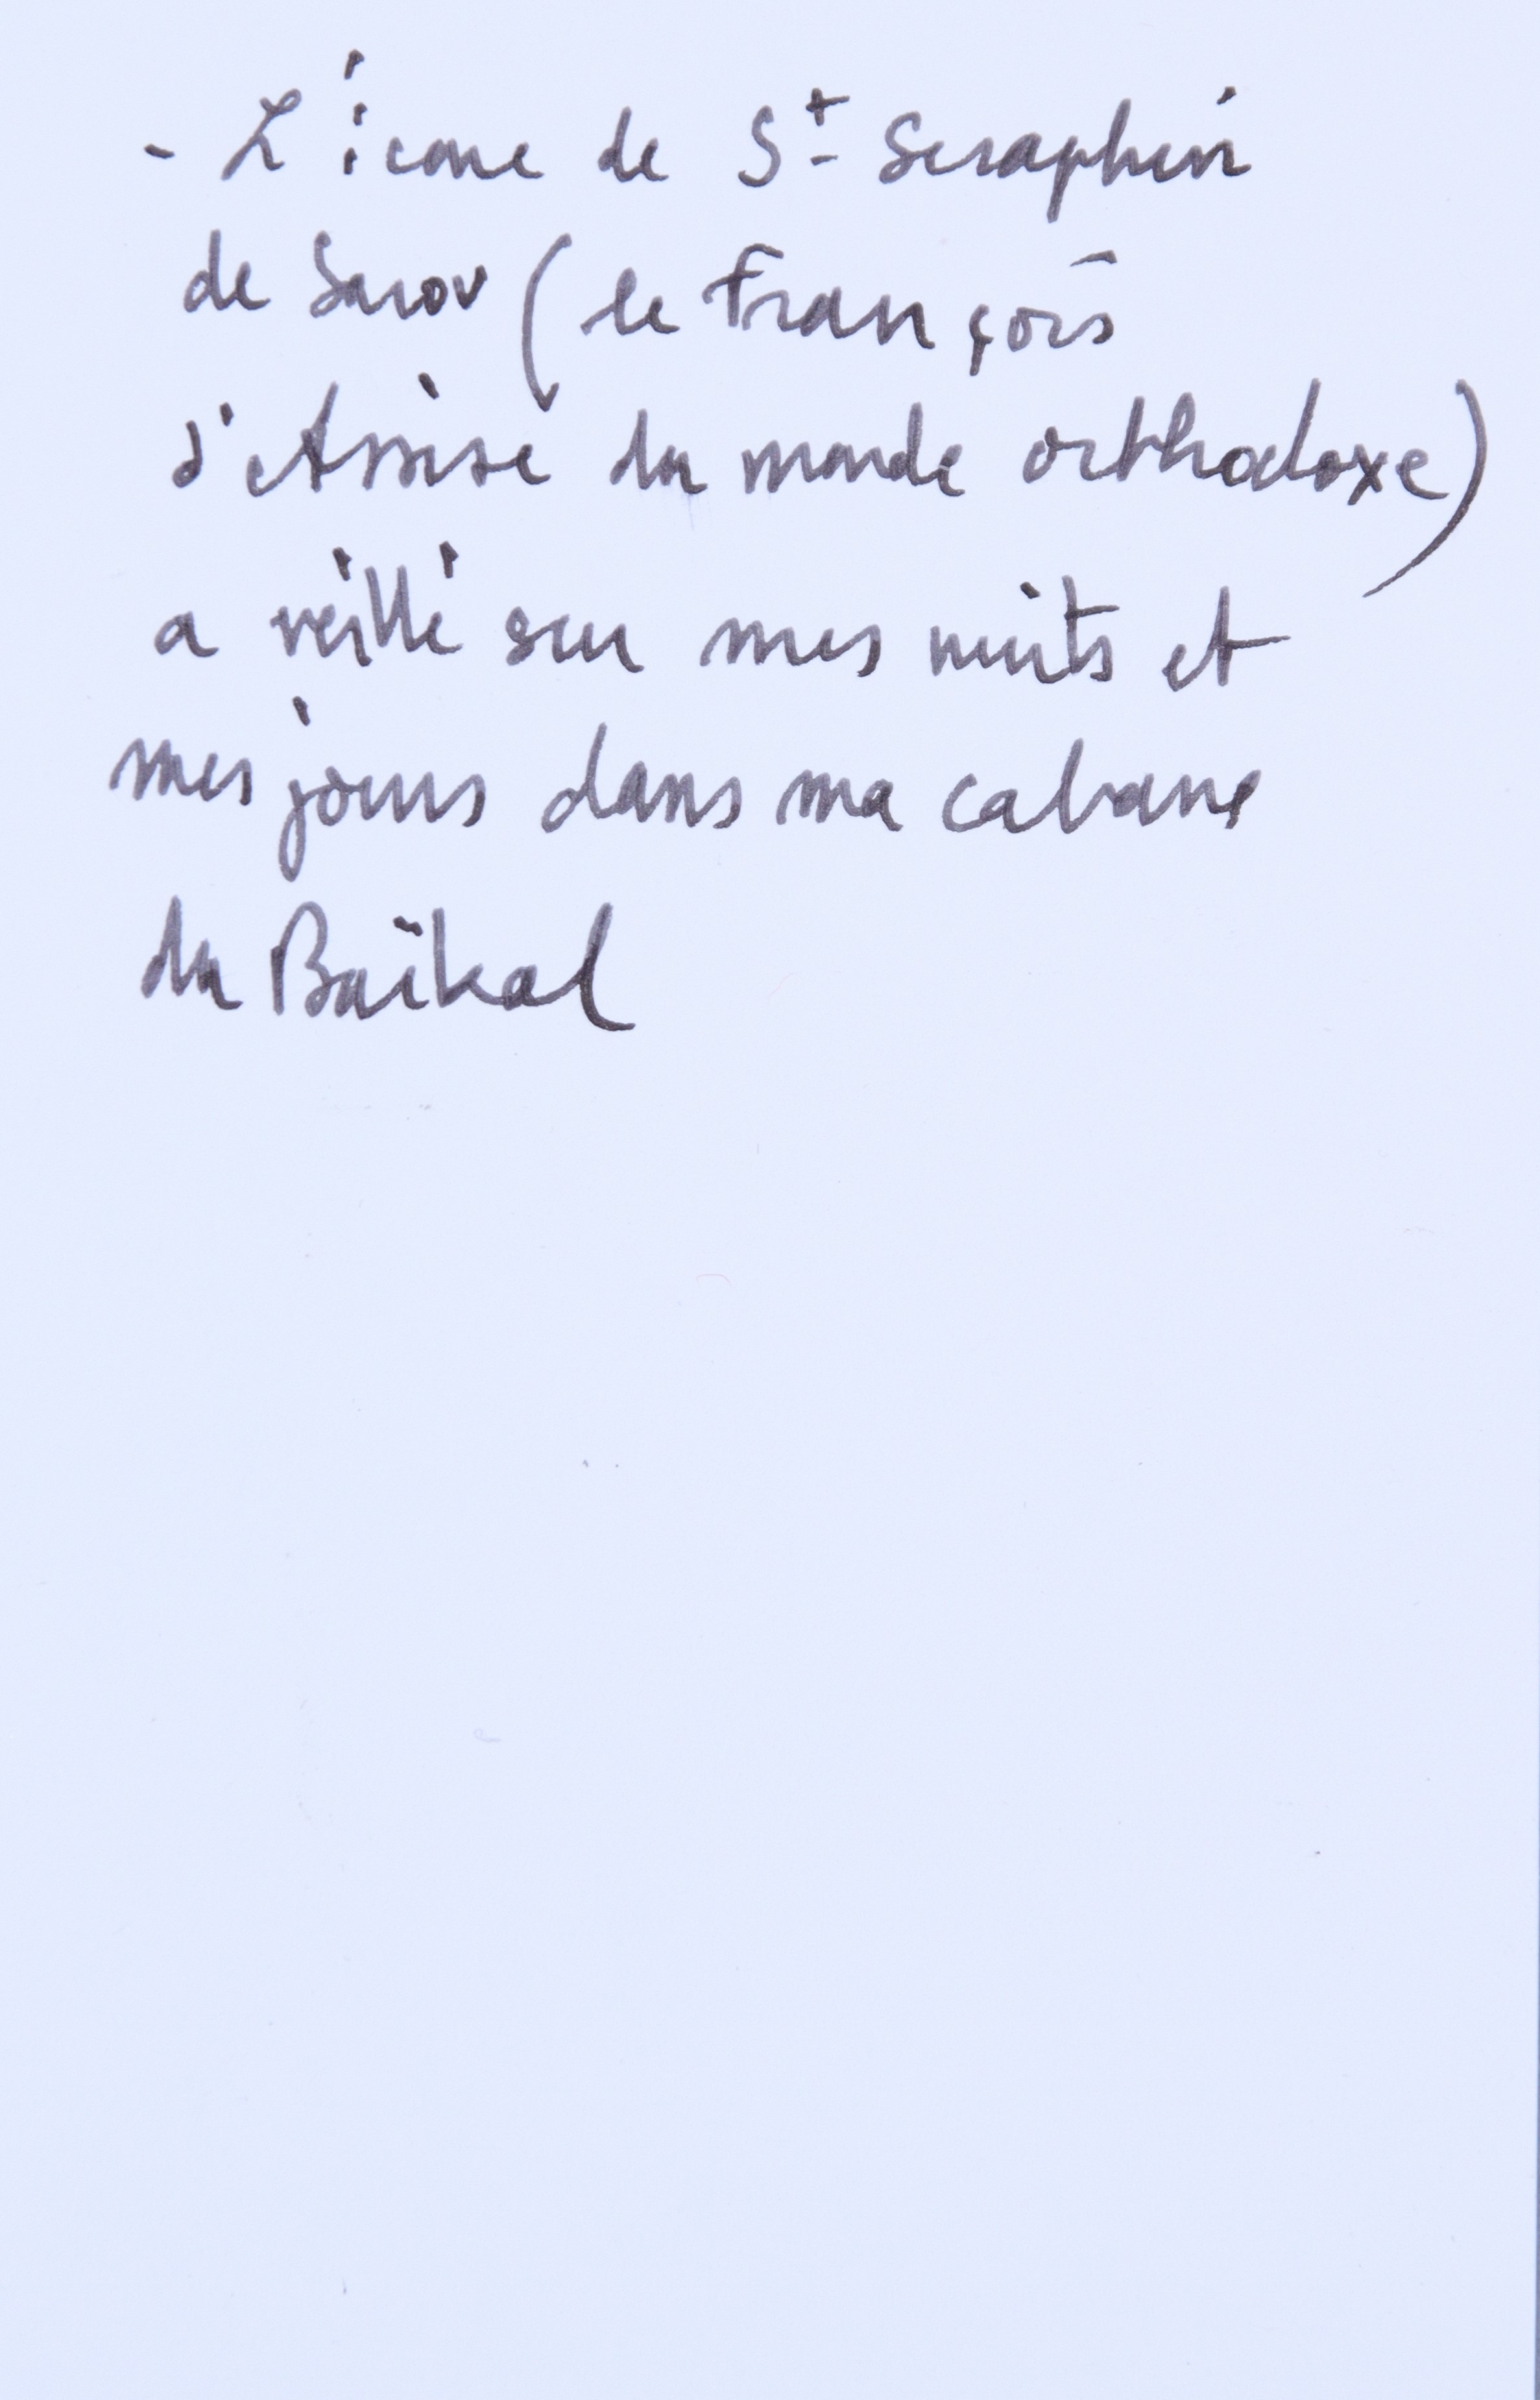 - L'icone de St Seraphin
de Sarov (le François
d'Assise du monde orthodoxe)
a veillé sur mes nuits et
mes jours dans ma cabane
du Baïkal